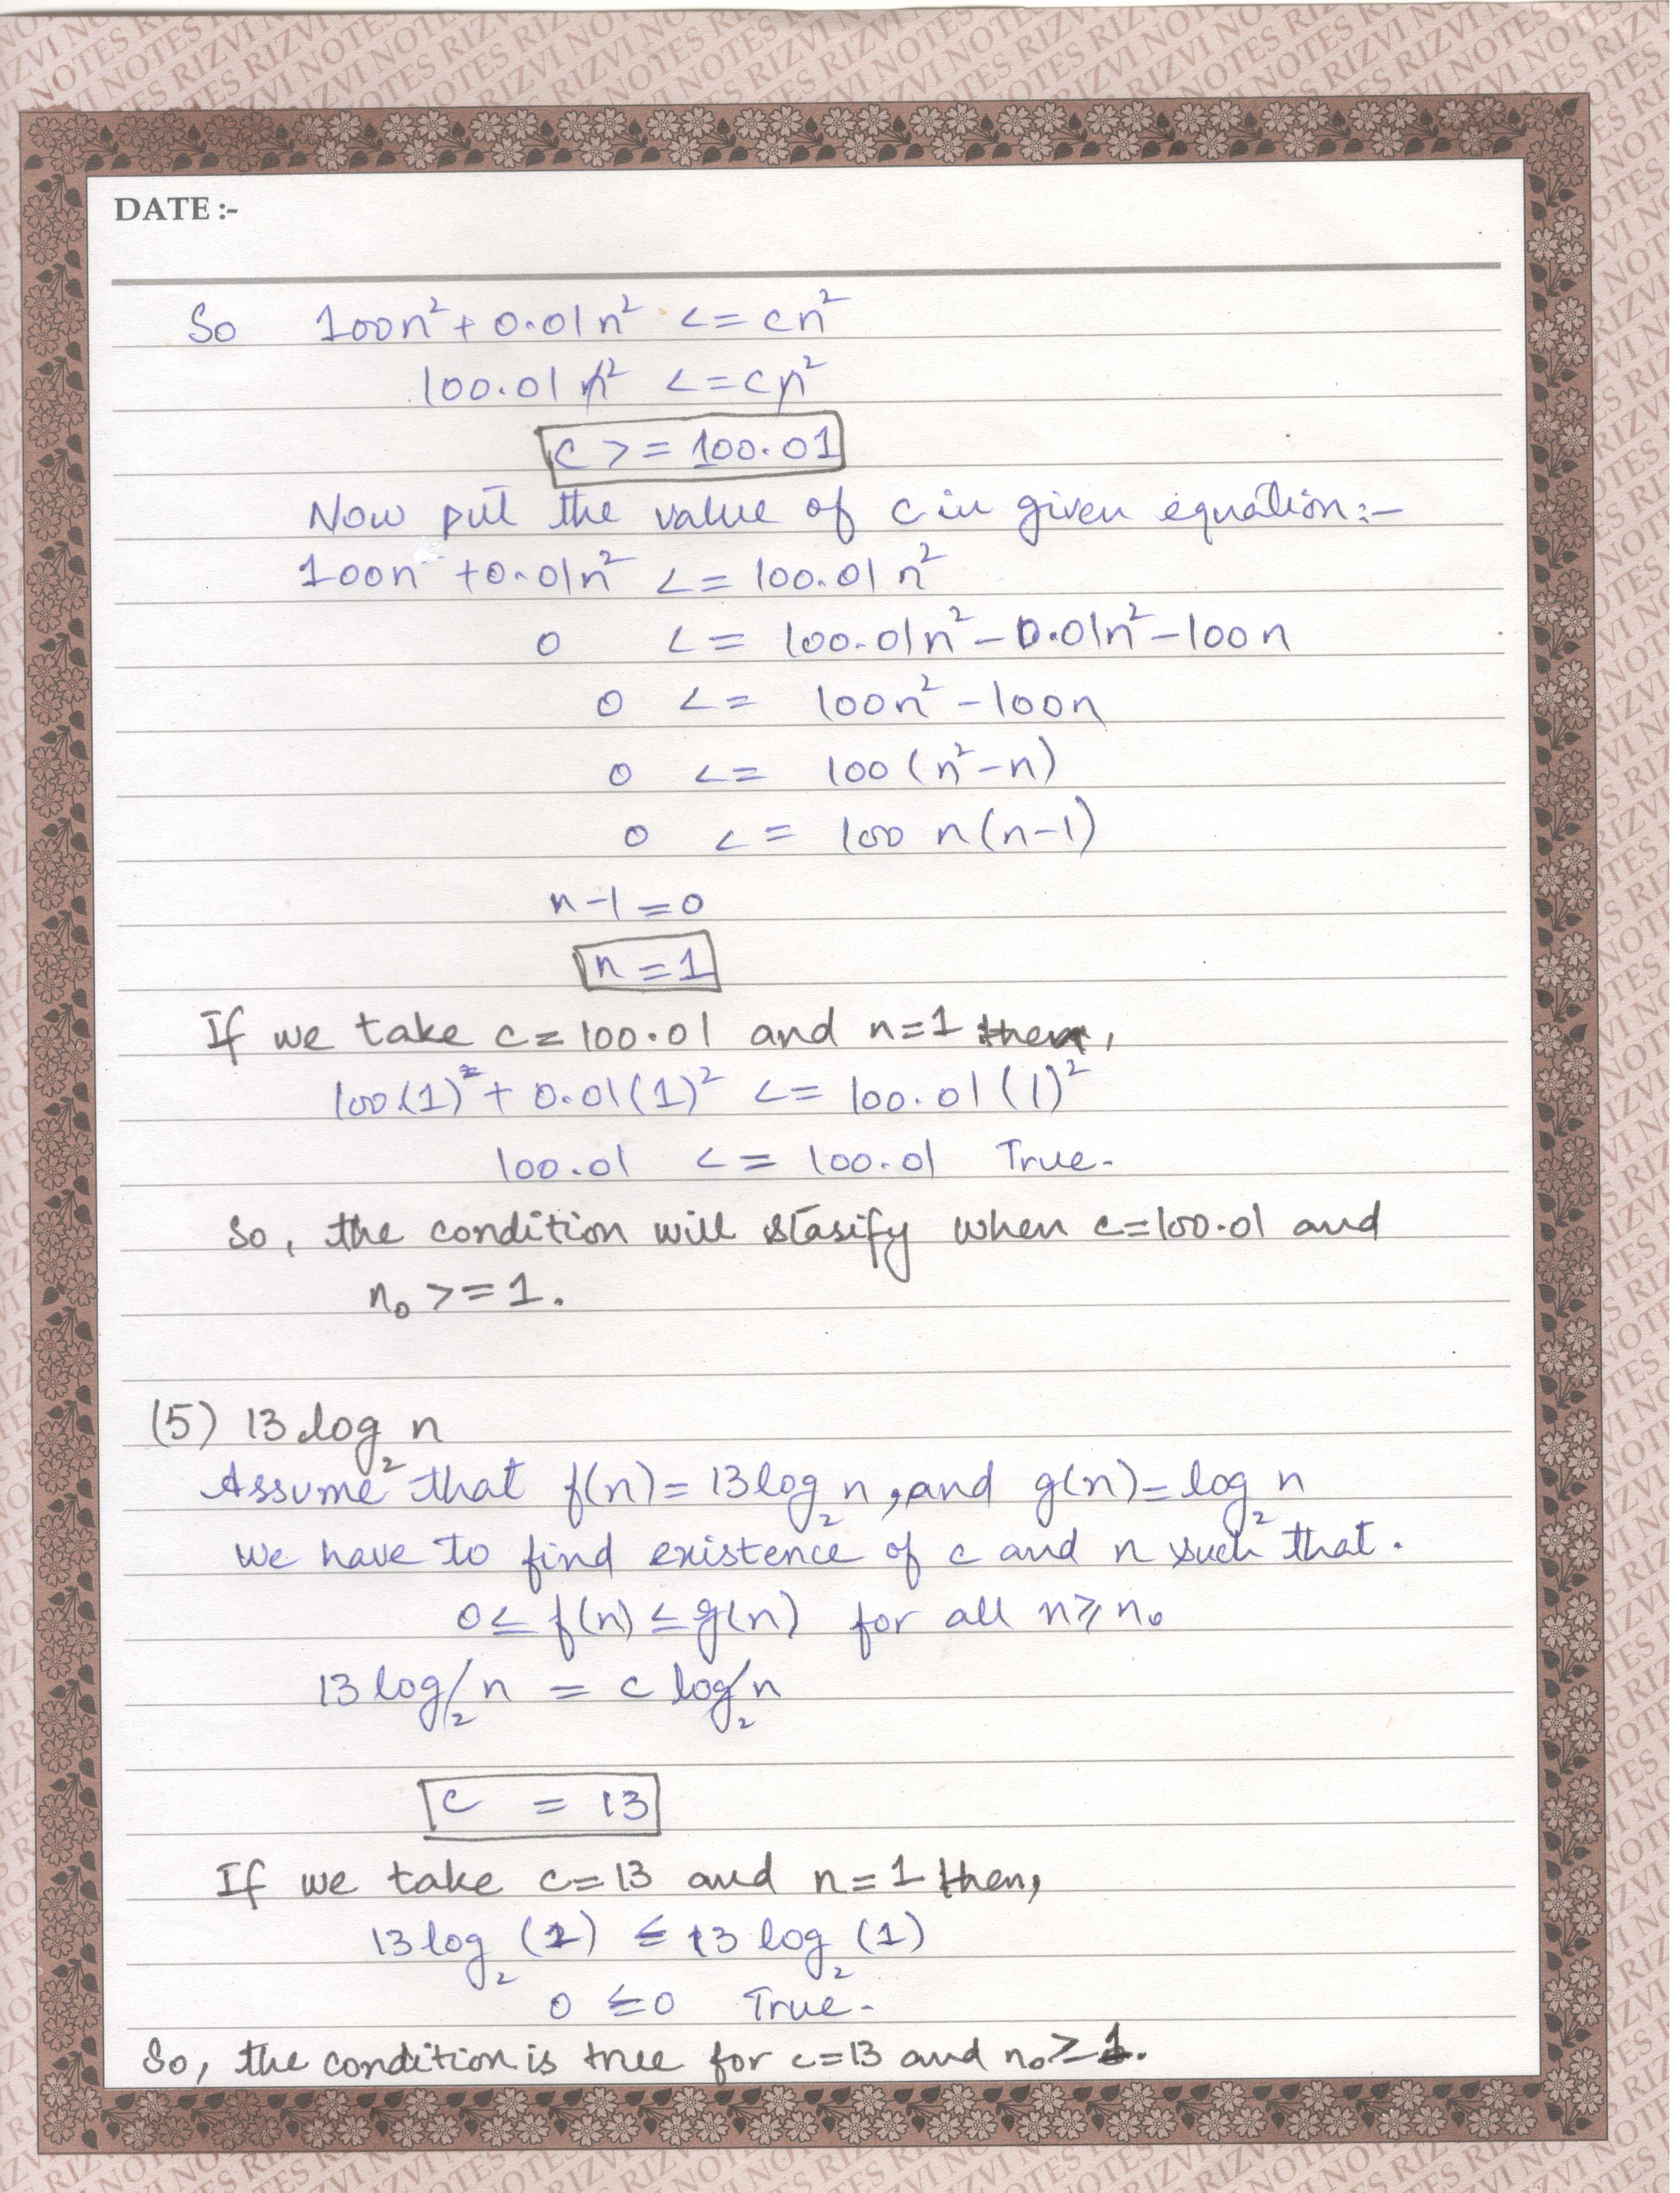 DATE :-
So 100n² + 0.01n² <= cn²
100.01 n² <= cn²
c >= 100.01
Now put the value of c in given equation:-
100n + 0.01n² <= 100.01 n²
0 <= 100.01n² - 0.01n² - 100n
0 <= 100n² - 100n
0 <= 100 (n² - n)
0 <= 100 n(n-1)
n-1 = 0
n = 1
If we take c = 100.01 and n=1 then,
100(1)² + 0.01(1)² <= 100.01 (1)²
100.01 <= 100.01 True.
So, the condition will stasify when c=100.01 and
n₀ >= 1.
(5) 13 log₂ n
Assume that f(n) = 13 log₂ n, and g(n) = log₂ n
we have to find existence of c and n such that.
0 ≤ f(n) ≤ g(n) for all n ≥ n₀
13 log₂ n = c log₂ n
c = 13
If we take c=13 and n=1 then,
13 log₂ (1) ≤ 13 log₂ (1)
0 ≤ 0 True.
So, the condition is true for c=13 and n₀ ≥ 1.